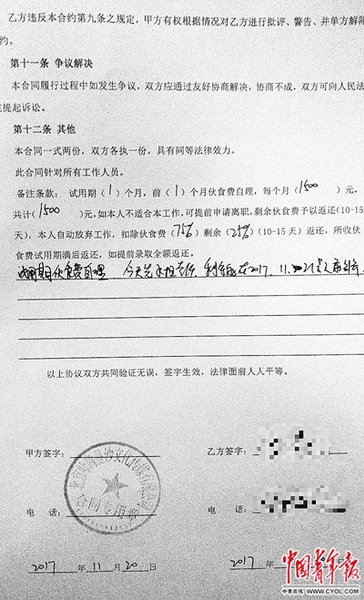 乙方违反本合约第九条之规定，甲方有权根据情况对乙方进行批评、警告、并单方解
约。
第十一条 争议解决
本合同履行过程中如发生争议，双方应通过友好协商解决，协商不成，双方可向人民法
提起诉讼。
第十二条 其他
本合同一式两份，双方各执一份，具有同等法律效力。
此合同针对所有工作人员。
备注条款：试用期（1）个月，前（1）个月伙食费自理，每个月（1500）元，
共计（1500）元，如本人不适合本工作，可提前申请离职，剩余伙食费予以返还（10-15
天）；本人自动放弃工作，扣除伙食费（75%）剩余（25%）（10-15天）返还，所收伙
食费试用期满后返还，如提前录取全额返还。
试用期伙食费自理 今天 2017、11、
以上协议双方共同验证无误，签字生效，法律面前人人平等。
甲方签字：
乙方签字：
合同专用章
电 话：
电 话：
2017 年 11 月 20 日
2017 年
中国青年报
中青在线 WWW.CYOL.COM